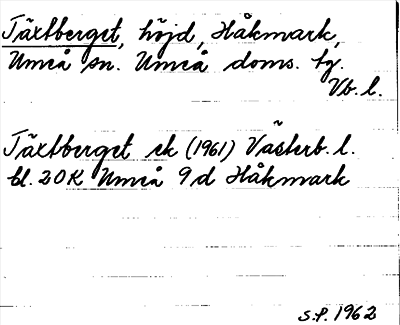 Täxtberget, höjd, Håkmark,
Umeå sn. Umeå doms. tg.
Vb. l.
Täxtberget ek (1961) Västerb. l.
bl. 20K Umeå 9d Håkmark
S.P. 1962